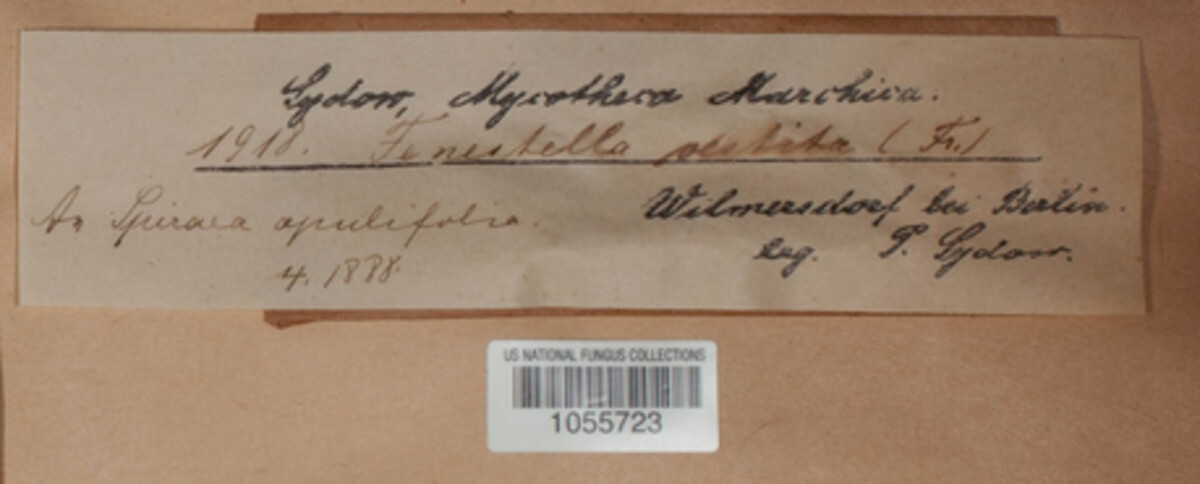 Sydow, Mycotheca Marchica.
1918. Fenestella vestita (Fr.)
An Spiraea opulifolia.
4. 1888.
Wilmersdorf bei Berlin.
leg. P. Sydow.
US NATIONAL FUNGUS COLLECTIONS
1055723